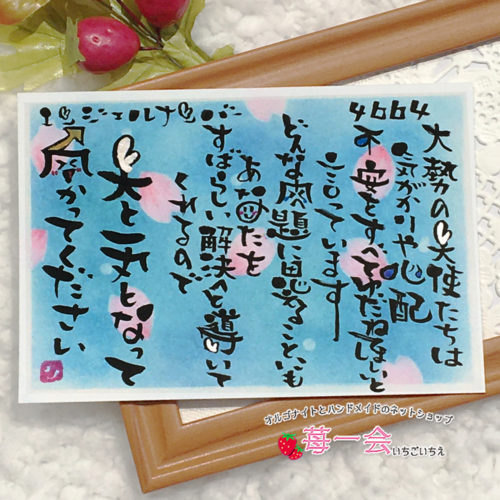 エンジェルナンバー 4664
大勢の天使たちは
気がかりや心配
不安をすべてゆだねてほしいと
言っています
どんな問題に思えることにも
あなたを
すばらしい解決へと導いて
くれるので
天と一丸となって
向かってください
オルゴナイトとハンドメイドのネットショップ
苺一会いちごいちえ